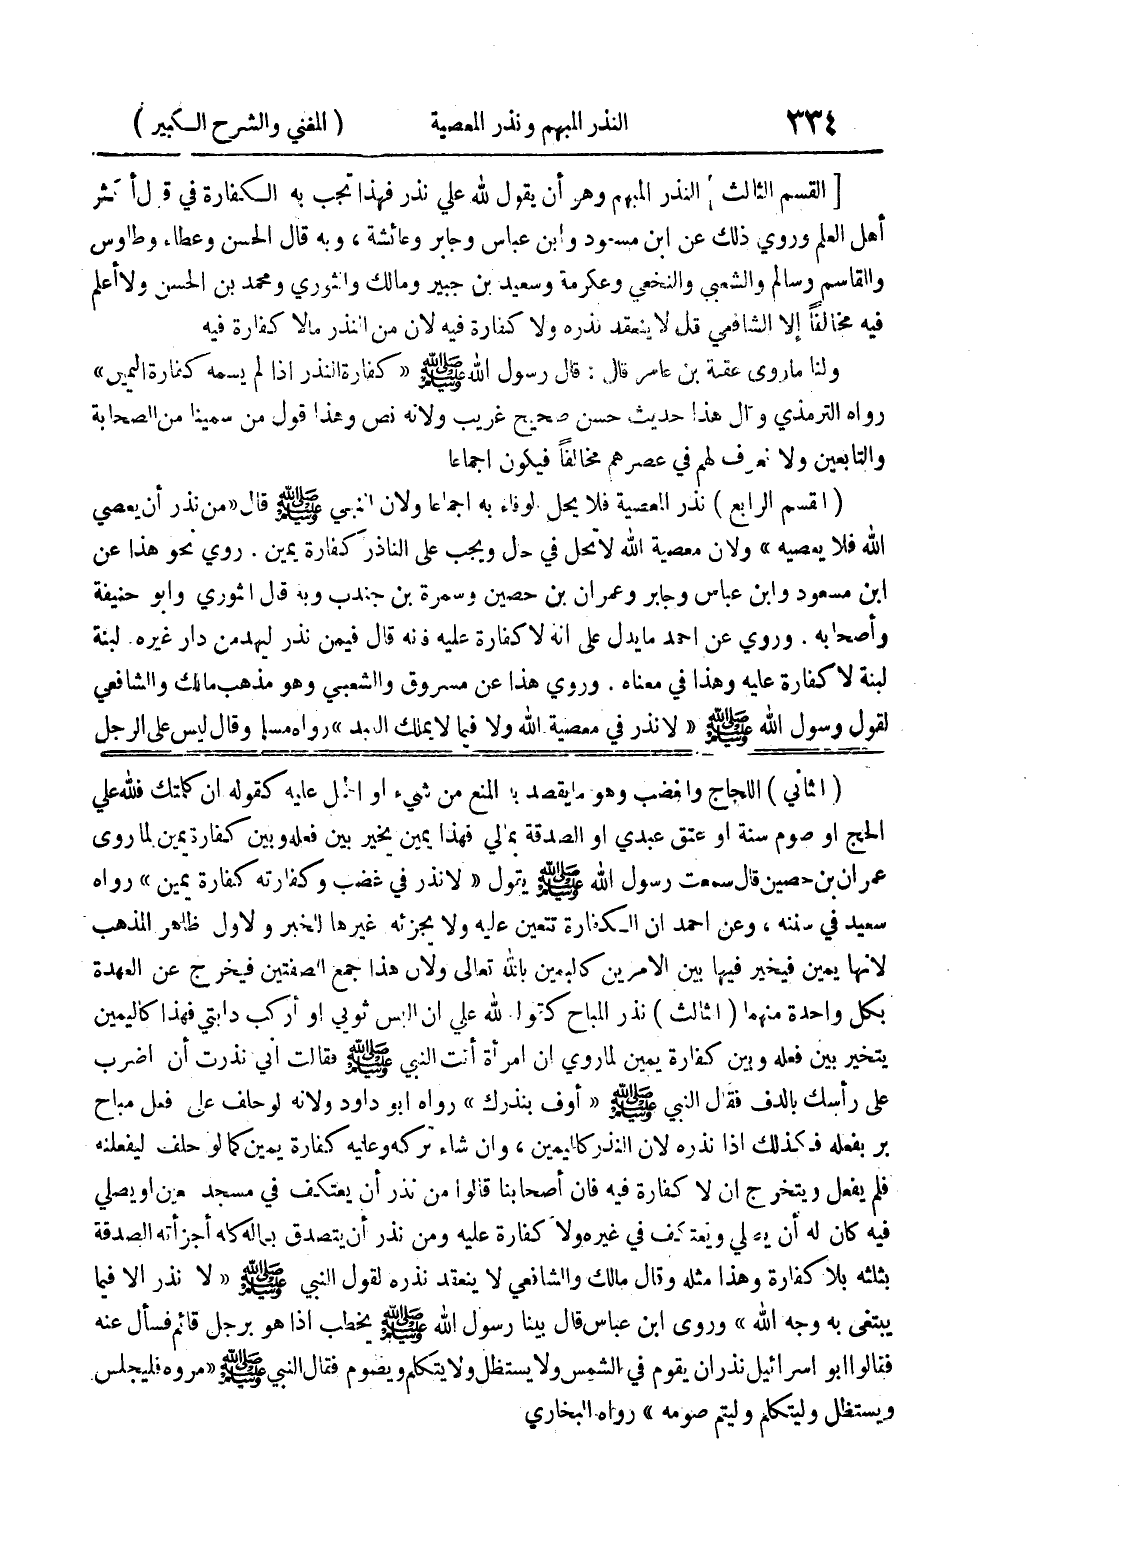 ٣٣٤ النذر المبهم ونذر المعصية ( المغني والشرح الكبير )
[ القسم الثالث ] النذر المبهم وهو أن يقول لله علي نذر فهذا تجب به الكفارة في قول أكثر
أهل العلم وروي ذلك عن ابن مسعود وابن عباس وجابر وعائشة ، وبه قال الحسن وعطاء وطاوس
والقاسم وسالم والشعبي والنخعي وعكرمة وسعيد بن جبير ومالك والثوري ومحمد بن الحسن ولا أعلم
فيه مخالفاً إلا الشافعي قال لا ينعقد نذره ولا كفارة فيه لان من النذر مالا كفارة فيه
ولنا ماروى عقبة بن عامر قال : قال رسول الله ﷺ « كفارة النذر اذا لم يسمه كفارة اليمين »
رواه الترمذي وقال هذا حديث حسن صحيح غريب ولانه نص وهذا قول من سمينا من الصحابة
والتابعين ولا نعرف لهم في عصرهم مخالفاً فيكون اجماعا
( القسم الرابع ) نذر المعصية فلا يحل الوفاء به اجماعا ولان النبي ﷺ قال « من نذر أن يعصي
الله فلا يعصيه » ولان معصية الله لا تحل في حال ويجب على الناذر كفارة يمين . روي نحو هذا عن
ابن مسعود وابن عباس وجابر وعمران بن حصين وسمرة بن جندب وبه قال الثوري وابو حنيفة
وأصحابه . وروي عن احمد مايدل على انه لا كفارة عليه فانه قال فيمن نذر ليهدمن دار غيره لبنة
لبنة لا كفارة عليه وهذا في معناه . وروي هذا عن مسروق والشعبي وهو مذهب مالك والشافعي
لقول وسول الله ﷺ « لا نذر في معصية الله ولا فيما لا يملك العبد » رواه مسلم وقال ليس على الرجل
( الثاني ) اللجاج والغضب وهو مايقصد به المنع من شيء او الحمل عليه كقوله ان كلمتك فلله علي
الحج او صوم سنة او عتق عبدي او الصدقة بمالي فهذا يمين يخير بين فعله وبين كفارة يمين لما روى
عمران بن حصين قال سمعت رسول الله ﷺ يقول « لا نذر في غضب وكفارته كفارة يمين » رواه
سعيد في سننه ، وعن احمد ان الكفارة تتعين عليه ولا يجزئه غيرها للخبر والاول ظاهر المذهب
لانها يمين فيخير فيها بين الامرين كاليمين بالله تعالى ولان هذا جمع الصفتين فيخرج عن العهدة
بكل واحدة منهما ( الثالث ) نذر المباح كقوله لله علي ان البس ثوبي او أركب دابتي فهذا كاليمين
يتخير بين فعله وبين كفارة يمين لماروي ان امرأة أتت النبي ﷺ فقالت اني نذرت أن اضرب
على رأسك بالدف فقال النبي ﷺ « أوف بنذرك » رواه ابو داود ولانه لو حلف على فعل مباح
بر بفعله فكذلك اذا نذره لان النذر كاليمين ، وان شاء تركه وعليه كفارة يمين كما لو حلف ليفعلنه
فلم يفعل ويتخرج ان لا كفارة فيه فان أصحابنا قالوا من نذر أن يعتكف في مسجد معين او يصلي
فيه كان له أن يصلي ويعتكف في غيره ولا كفارة عليه ومن نذر أن يتصدق بماله كله أجزأته الصدقة
بثلثه بلا كفارة وهذا مثله وقال مالك والشافعي لا ينعقد نذره لقول النبي ﷺ « لا نذر الا فيما
يبتغى به وجه الله » وروى ابن عباس قال بينا رسول الله ﷺ يخطب اذا هو برجل قائم فسأل عنه
فقالوا ابو اسرائيل نذر ان يقوم في الشمس ولا يستظل ولا يتكلم ويصوم فقال النبي ﷺ « مروه فليجلس
ويستظل وليتكلم وليتم صومه » رواه البخاري